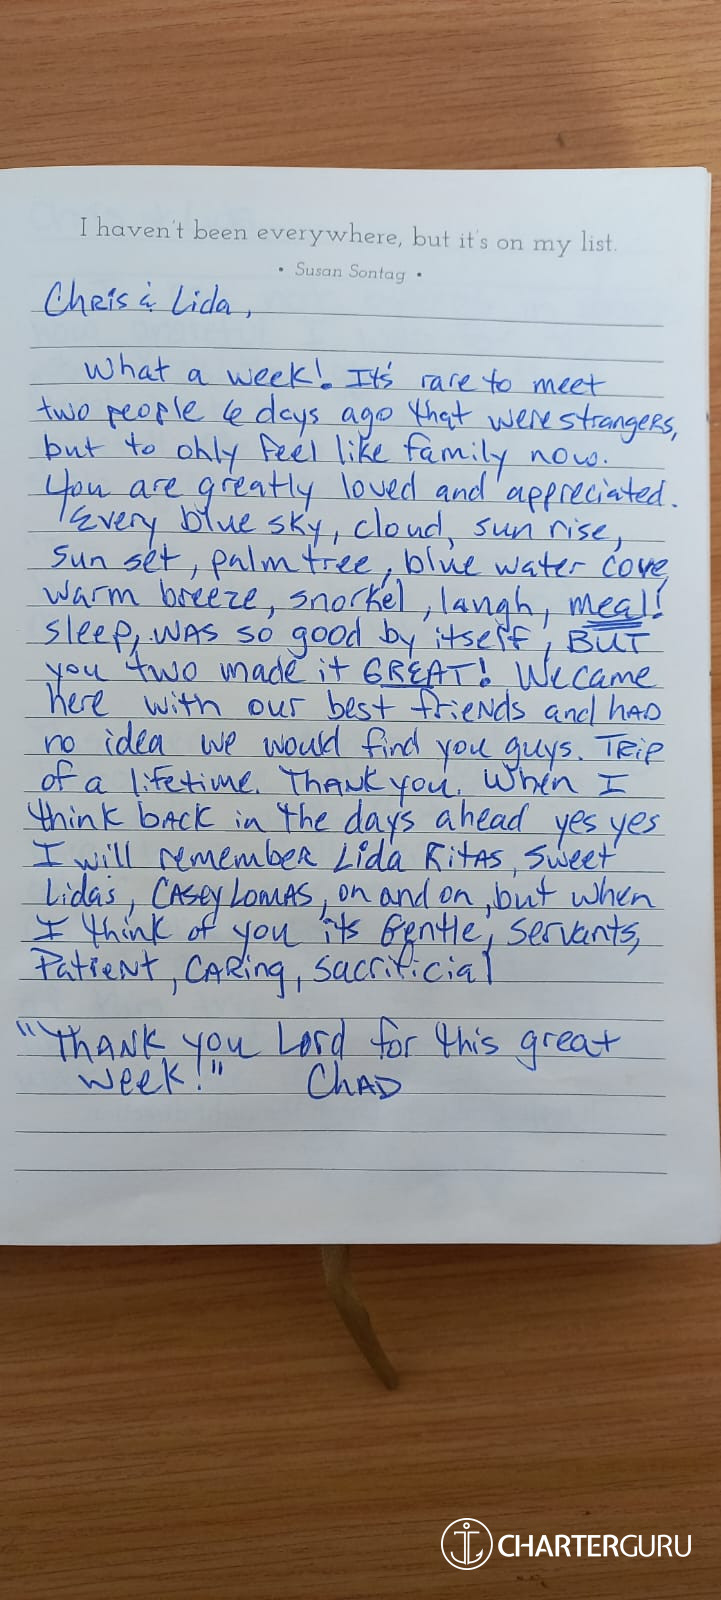 I haven't been everywhere, but it's on my list.
• Susan Sontag •
Chris & Lida,
What a week! It's rare to meet
two people 6 days ago that were strangers,
but to only feel like family now.
You are greatly loved and appreciated.
Every blue sky, cloud, sun rise,
sun set, palm tree, blue water cove,
warm breeze, snorkel, laugh, meal!
sleep, WAS so good by itself, BUT
you two made it GREAT! We came
here with our best friends and HAD
no idea we would find you guys. TRip
of a lifetime. THANK you. When I
think BACK in the days ahead yes yes
I will remember Lida RitAS, Sweet
Lidas, CASEY LOMAS, on and on, but when
I think of you its Gentle, Servants,
Patient, CARing, Sacrificial
"THANK you Lord for this great
week!" CHAD
CHARTERGURU